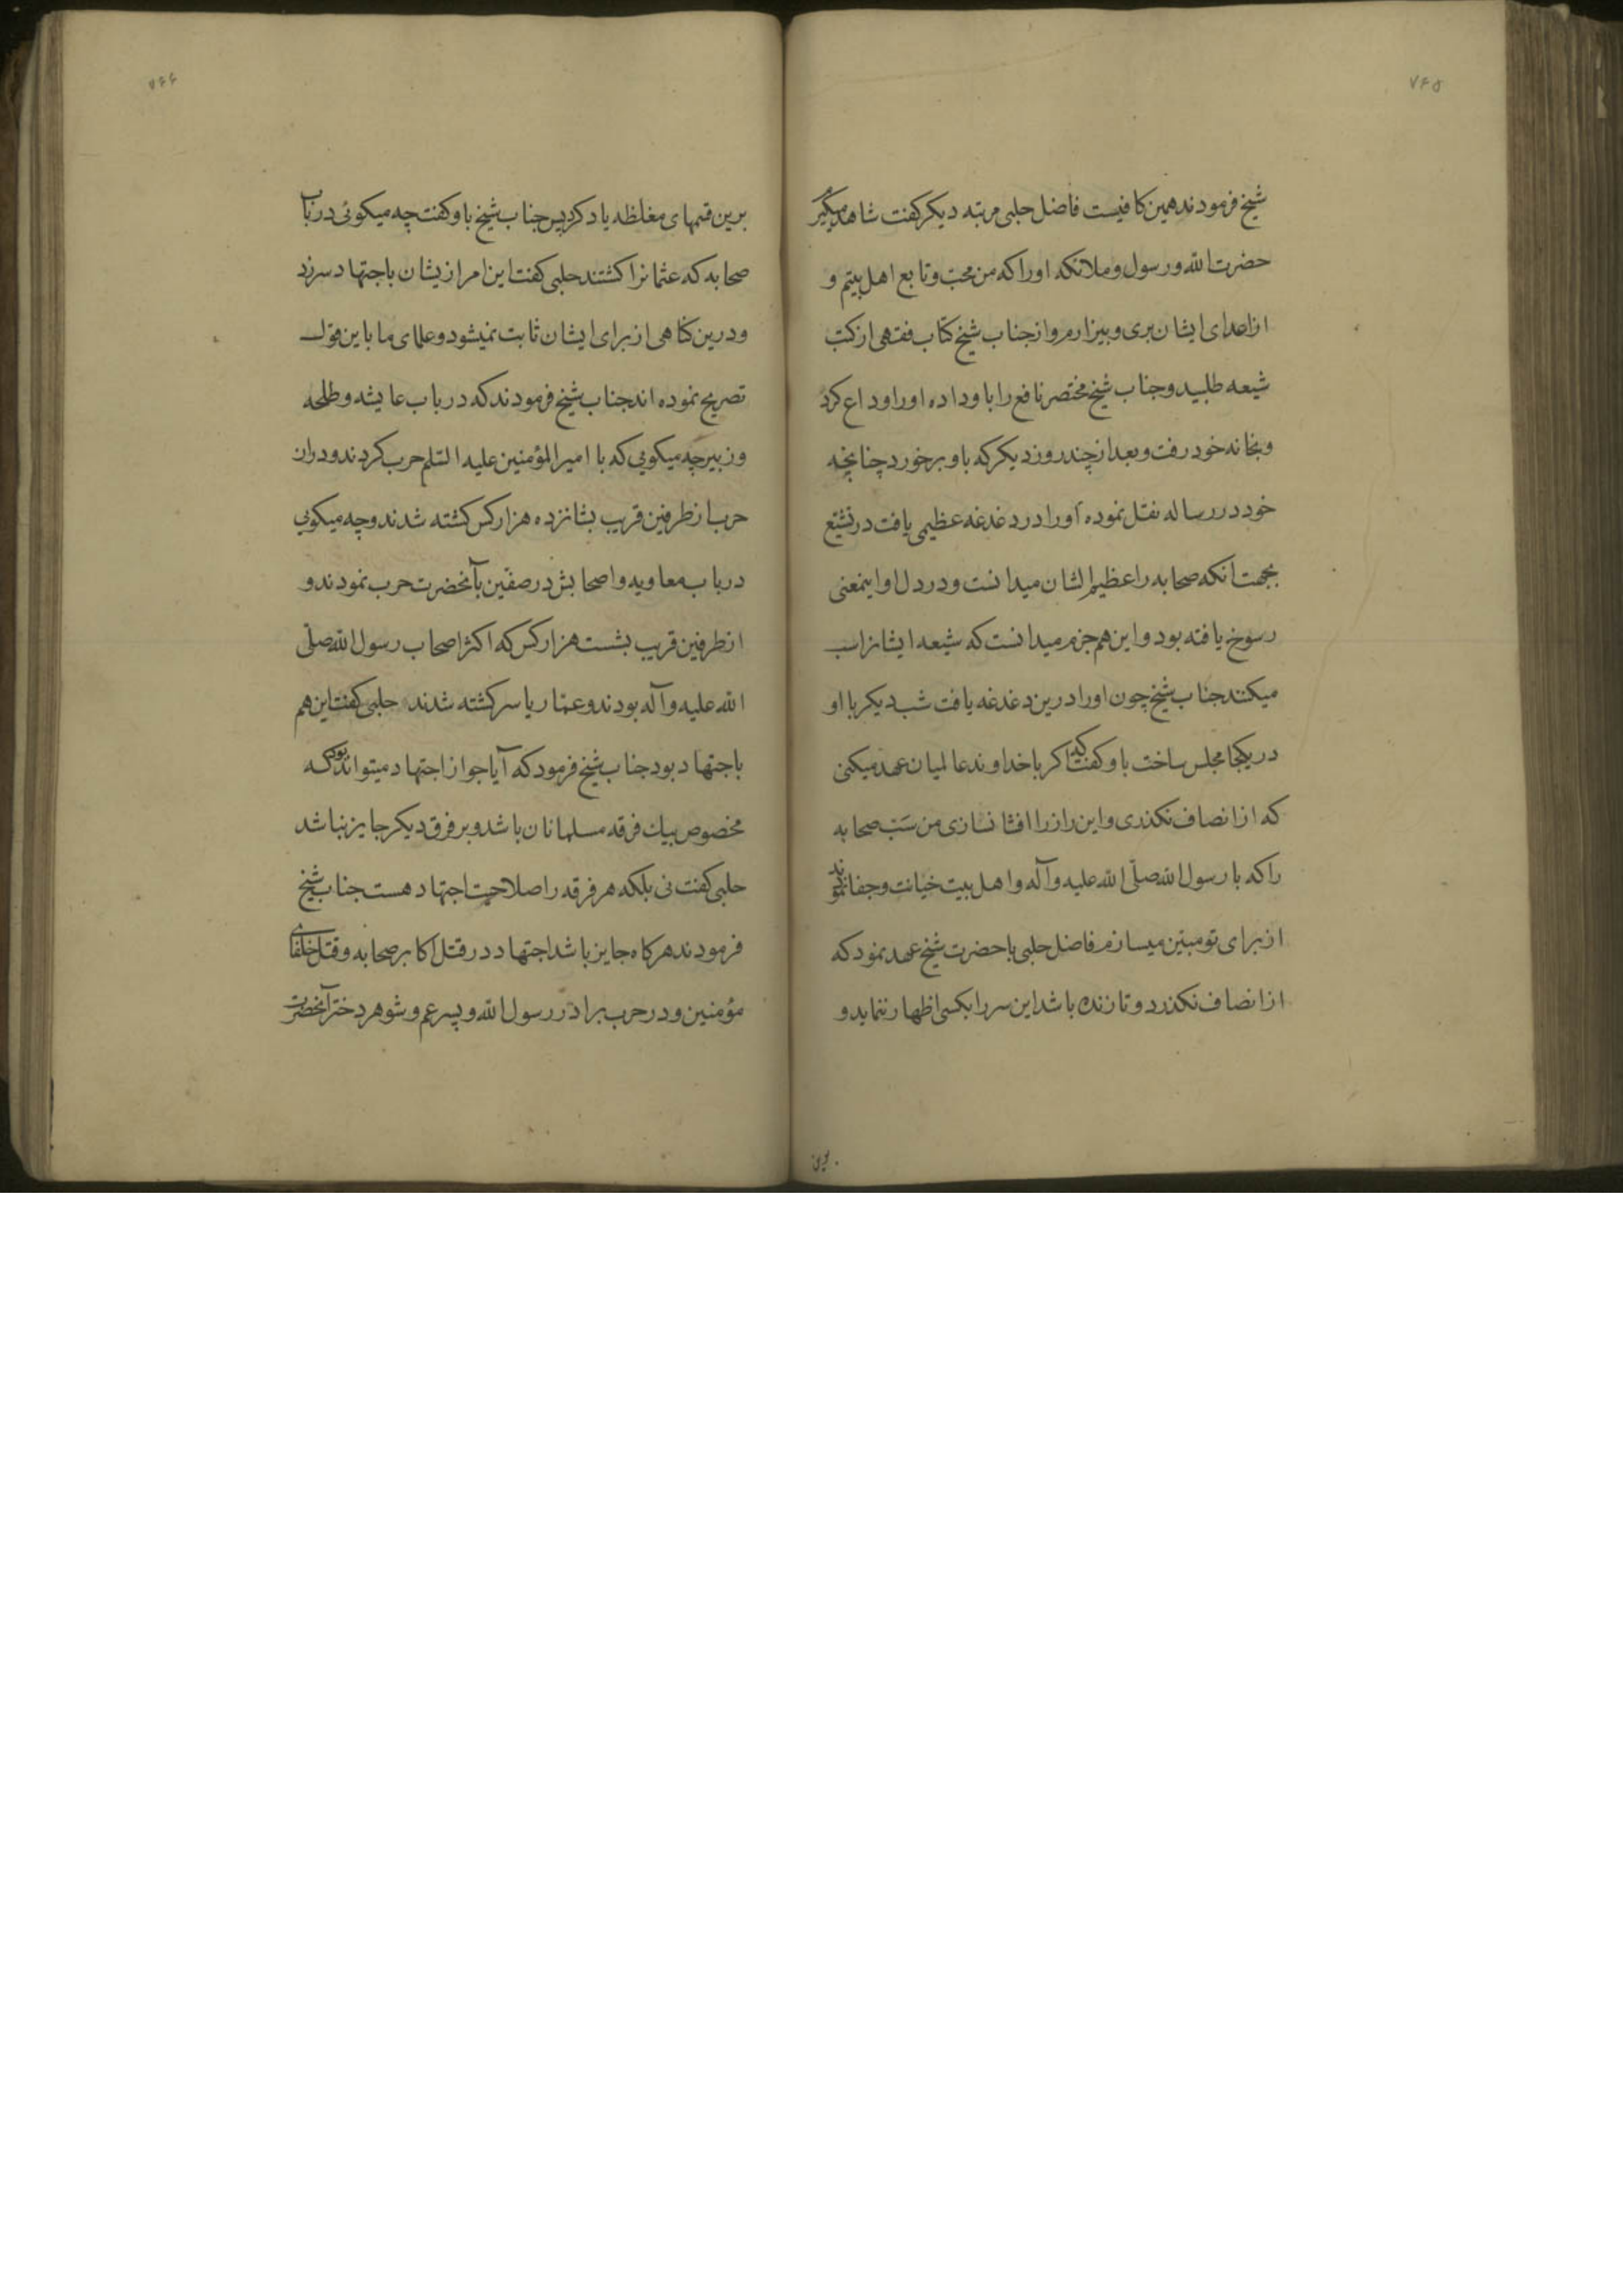 ۷۴۵
شیخ فرمودند همین کافیست فاضل حلبی مرتبه دیکر کفت شاهد میکیرم
حضرت الله و رسول و ملائکه او را که من محب و تابع اهل بیتم و
از اعدای ایشان بری و بیزارم و از جناب شیخ کتاب فقهی از کتب
شیعه طلبید و جناب شیخ مختصر نافع را باو داده او را وداع کرد
و بخانه خود رفت و بعد از چند روز دیکر که باو برخورد چنانچه
خود در رساله نقل نموده او را در دغدغه عظیمی یافت در تشیع
بجهت انکه صحابه را عظیم الشان میدانست و در دل او اینمعنی
رسوخ یافته بود و این هم جزم میدانست که شیعه ایشانرا سب
میکنند جناب شیخ چون او را درین دغدغه یافت شب دیکر با او
در یکجا مجلس ساخت باو کفت که اکر با خداوند عالمیان عهد میکنی
که از انصاف نکذری و این راز را افشا نسازی من سَبّ صحابه
را که با رسول الله صلّی الله علیه وآله و اهل بیت خیانت و جفا نمودند
از برای تو مبیّن میسازم فاضل حلبی با حضرت شیخ عهد نمود که
از انصاف نکذرد و تا زنده باشد این سر را بکسی اظهار ننماید و
برین
۷۴۶
برین قسمهای مغلظه یاد کرد پس جناب شیخ باو کفت چه میکوئی در باب
صحابه که عثمانرا کشتند حلبی کفت این امر ازیشان باجتهاد سر زد
و درین کناهی از برای ایشان ثابت نمیشود و علمای ما باین قول
تصریح نموده اند جناب شیخ فرمودند که در باب عایشه و طلحه
و زبیر چه میکویی که با امیر المؤمنین علیه السّلم حرب کردند و در ان
حرب از طرفین قریب بشانزده هزار کس کشته شدند و چه میکویی
در باب معاویه و اصحابش در صفّین با آنحضرت حرب نمودند و
از طرفین قریب بشست هزار کس که اکثر اصحاب رسول الله صلّی
الله علیه وآله بودند و عمّار یاسر کشته شدند حلبی کفت این هم
باجتهاد بود جناب شیخ فرمود که آیا جواز اجتهاد میتواند بود که
مخصوص بیک فرقه مسلمانان باشد و بر فرق دیکر جایز نباشد
حلبی کفت نی بلکه هر فرقه را صلاحیت اجتهاد هست جناب شیخ
فرمودند هرکاه جایز باشد اجتهاد در قتل اکابر صحابه و قتل خلفای
مؤمنین و در حرب برادر رسول الله و پسر عم و شوهر دختر آنحضرت